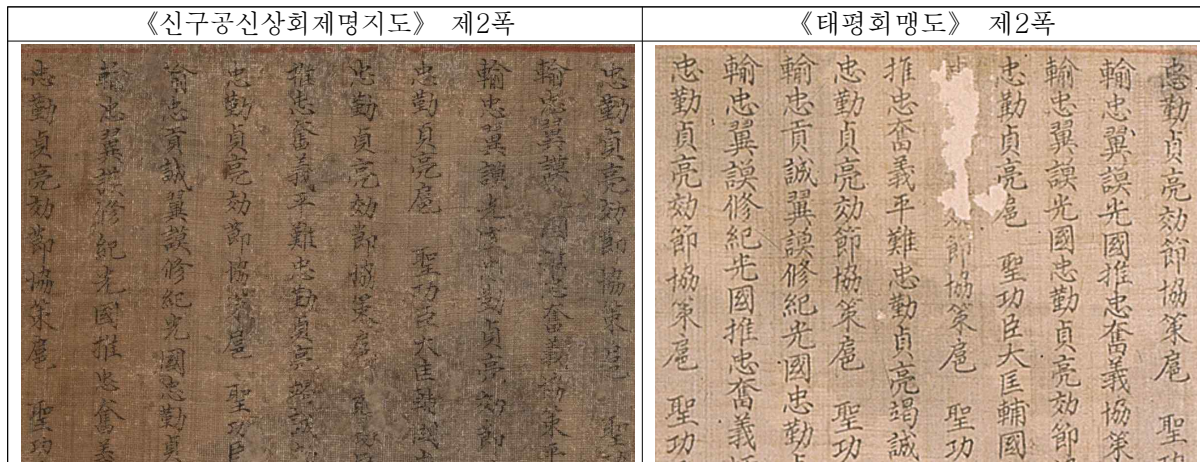 《신구공신상회제명지도》 제2폭
忠勤貞亮効節協策扈 聖
輸忠翼謨光國推忠奮義協策平
輸忠翼謨光國忠勤貞亮効節
忠勤貞亮扈 聖功臣大匡輔國
忠勤貞亮効節協策扈
推忠奮義平難忠勤貞亮竭誠
忠勤貞亮効節協策扈 聖功臣
輸忠貢誠翼謨修紀光國忠勤貞
輸忠翼謨修紀光國推忠奮義
忠勤貞亮効節協策扈 聖功
《태평회맹도》 제2폭
忠勤貞亮効節協策扈 聖功
輸忠翼謨光國推忠奮義協策
輸忠翼謨光國忠勤貞亮効節
忠勤貞亮扈 聖功臣大匡輔國
節協策扈 聖功
推忠奮義平難忠勤貞亮竭誠
忠勤貞亮効節協策扈 聖功
輸忠貢誠翼謨修紀光國忠勤
輸忠翼謨修紀光國推忠奮義
忠勤貞亮効節協策扈 聖功